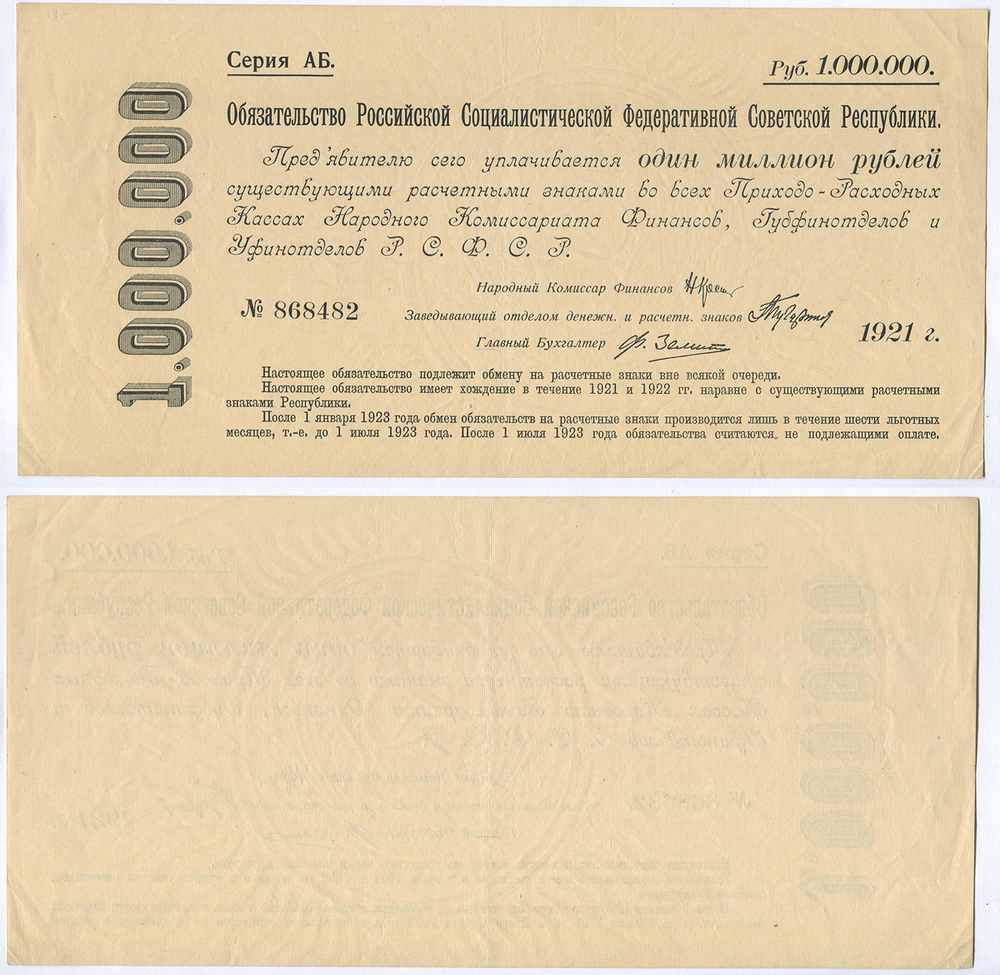 Серия АБ.
Руб. 1.000.000.
1.000.000
Обязательство Российской Социалистической Федеративной Советской Республики.
Пред'явителю сего уплачивается один миллион рублей
существующими расчетными знаками во всех Приходо-Расходных
Кассах Народного Комиссариата Финансов, Губфинотделов и
Уфинотделов Р. С. Ф. С. Р.
Народный Комиссар Финансов
№ 868482
Заведывающий отделом денежн. и расчетн. знаков
1921 г.
Главный Бухгалтер
Настоящее обязательство подлежит обмену на расчетные знаки вне всякой очереди.
Настоящее обязательство имеет хождение в течение 1921 и 1922 гг. наравне с существующими расчетными
знаками Республики.
После 1 января 1923 года обмен обязательств на расчетные знаки производится лишь в течение шести льготных
месяцев, т.-е. до 1 июля 1923 года. После 1 июля 1923 года обязательства считаются не подлежащими оплате.